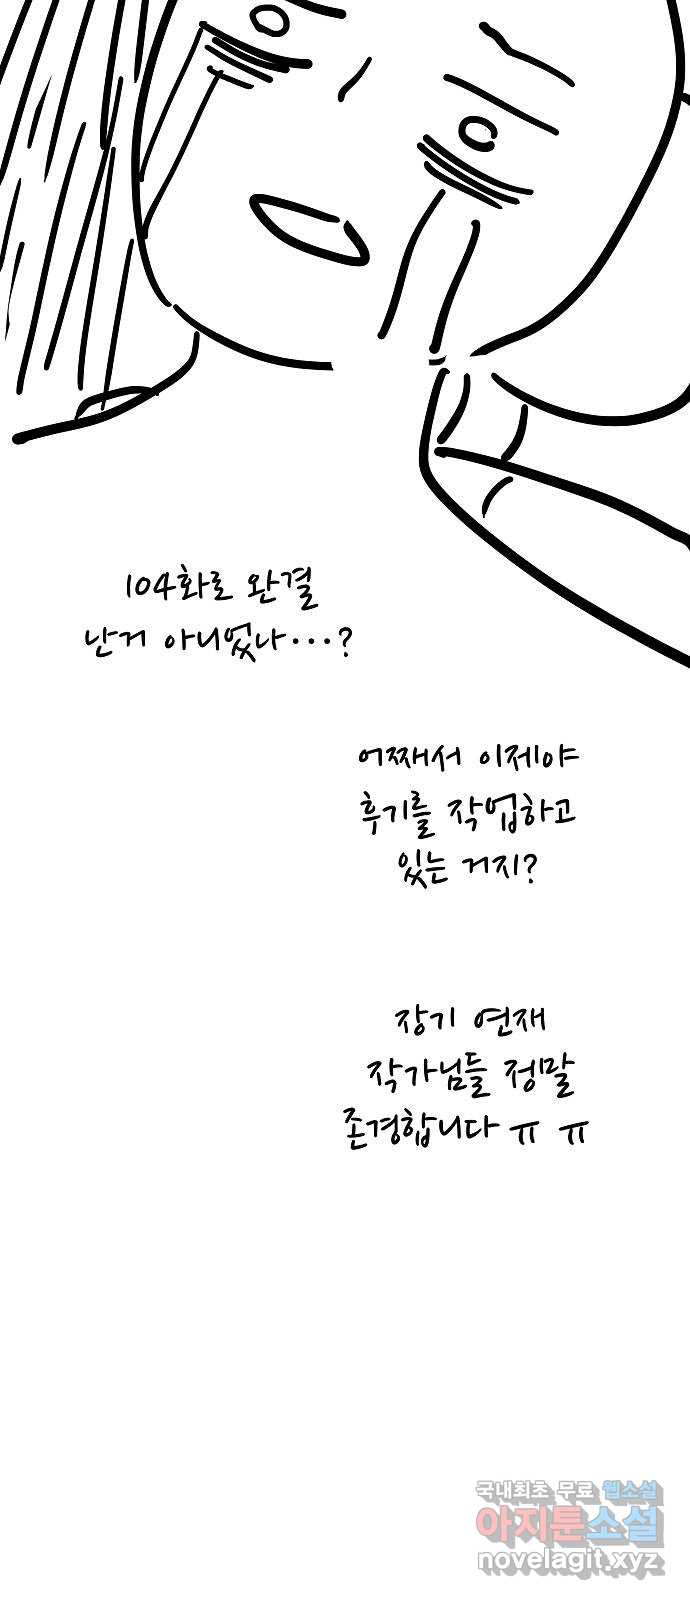 104화로 완결
난거 아니었나...?
어째서 이제야
후기를 작업하고
있는 거지?
장기 연재
작가님들 정말
존경합니다 ㅠㅠ
국내최초 무료 웹소설
아지툰소설
novelagit.xyz